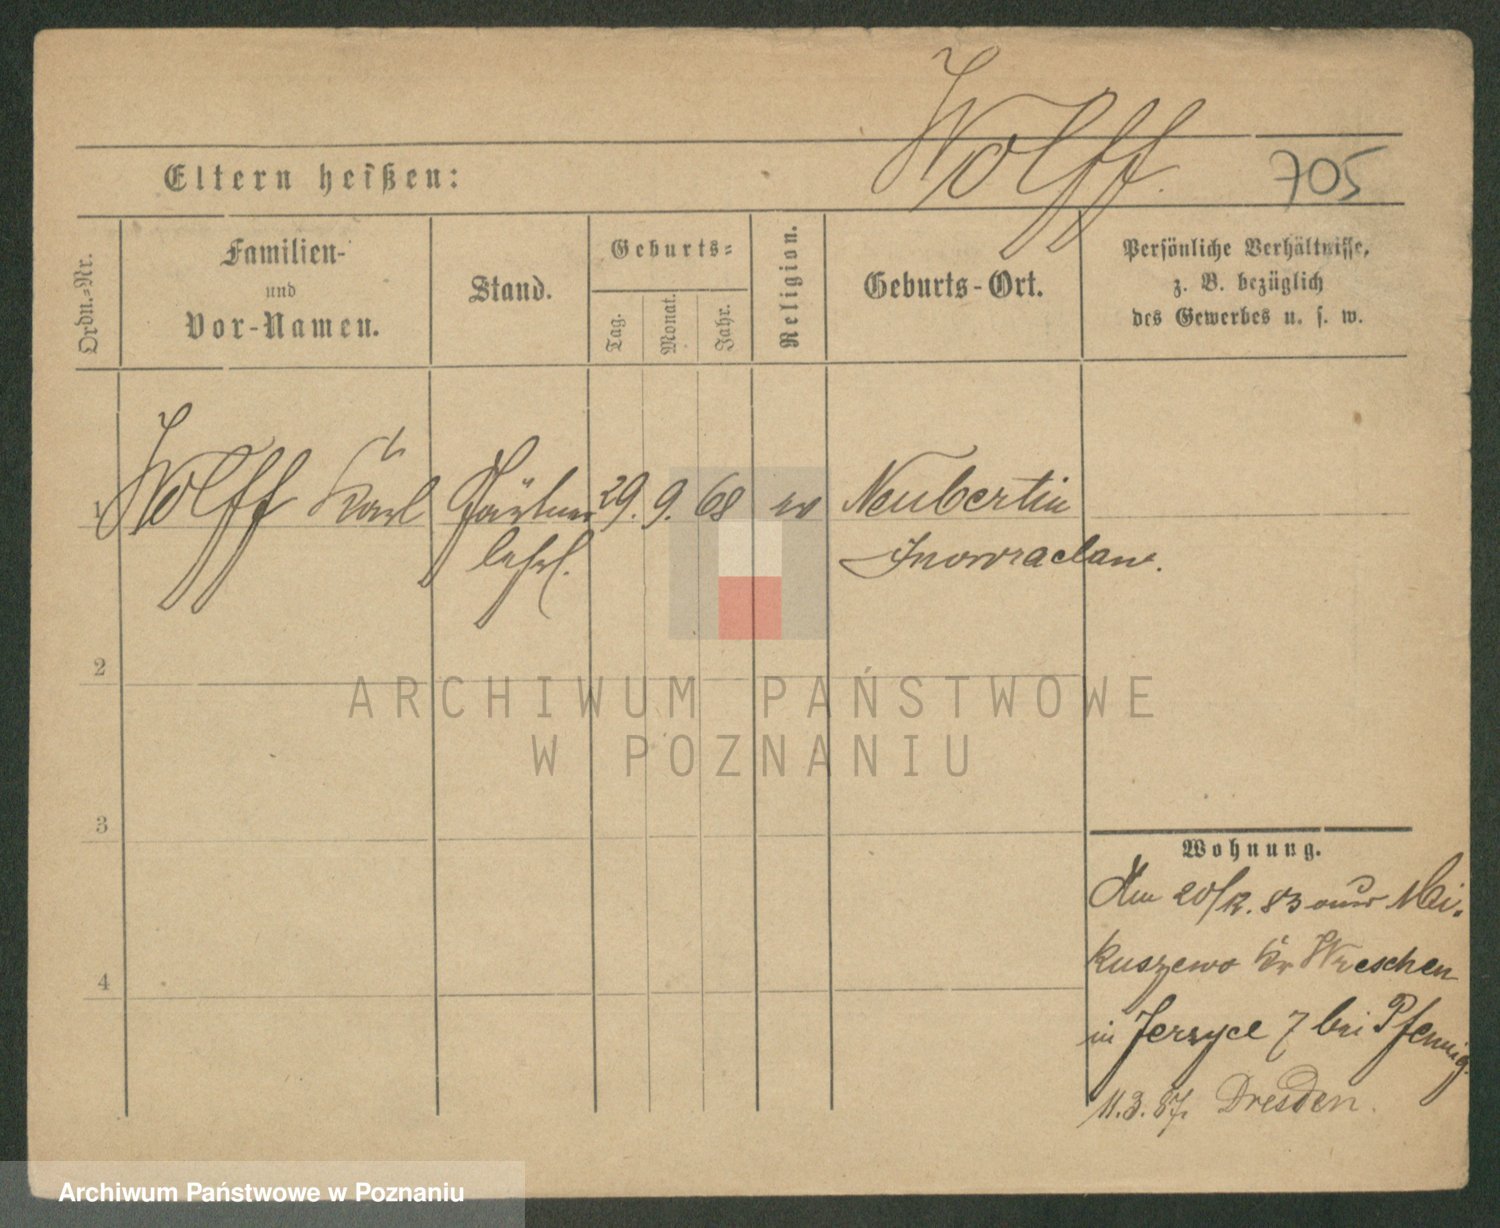 Wolff.
705
Eltern heißen:
Ordn.-Nr.
Familien-
und
Vor-Namen.
Stand.
Geburts-
Tag.
Monat.
Jahr.
Religion.
Geburts-Ort.
Persönliche Verhältnisse,
z. B. bezüglich
des Gewerbes u. s. w.
1 Wolff Karl Gärtner 29. 9. 68 ev Neubertin
lehrl. Inowraclaw.
2
ARCHIWUM PAŃSTWOWE
W POZNANIU
3
4
Wohnung.
Am 20/12. 83 aus Mi-
kuszewo Kr Wreschen
in Jerzyce 7 bei Pfennig.
11.3.87. Dresden.
Archiwum Państwowe w Poznaniu